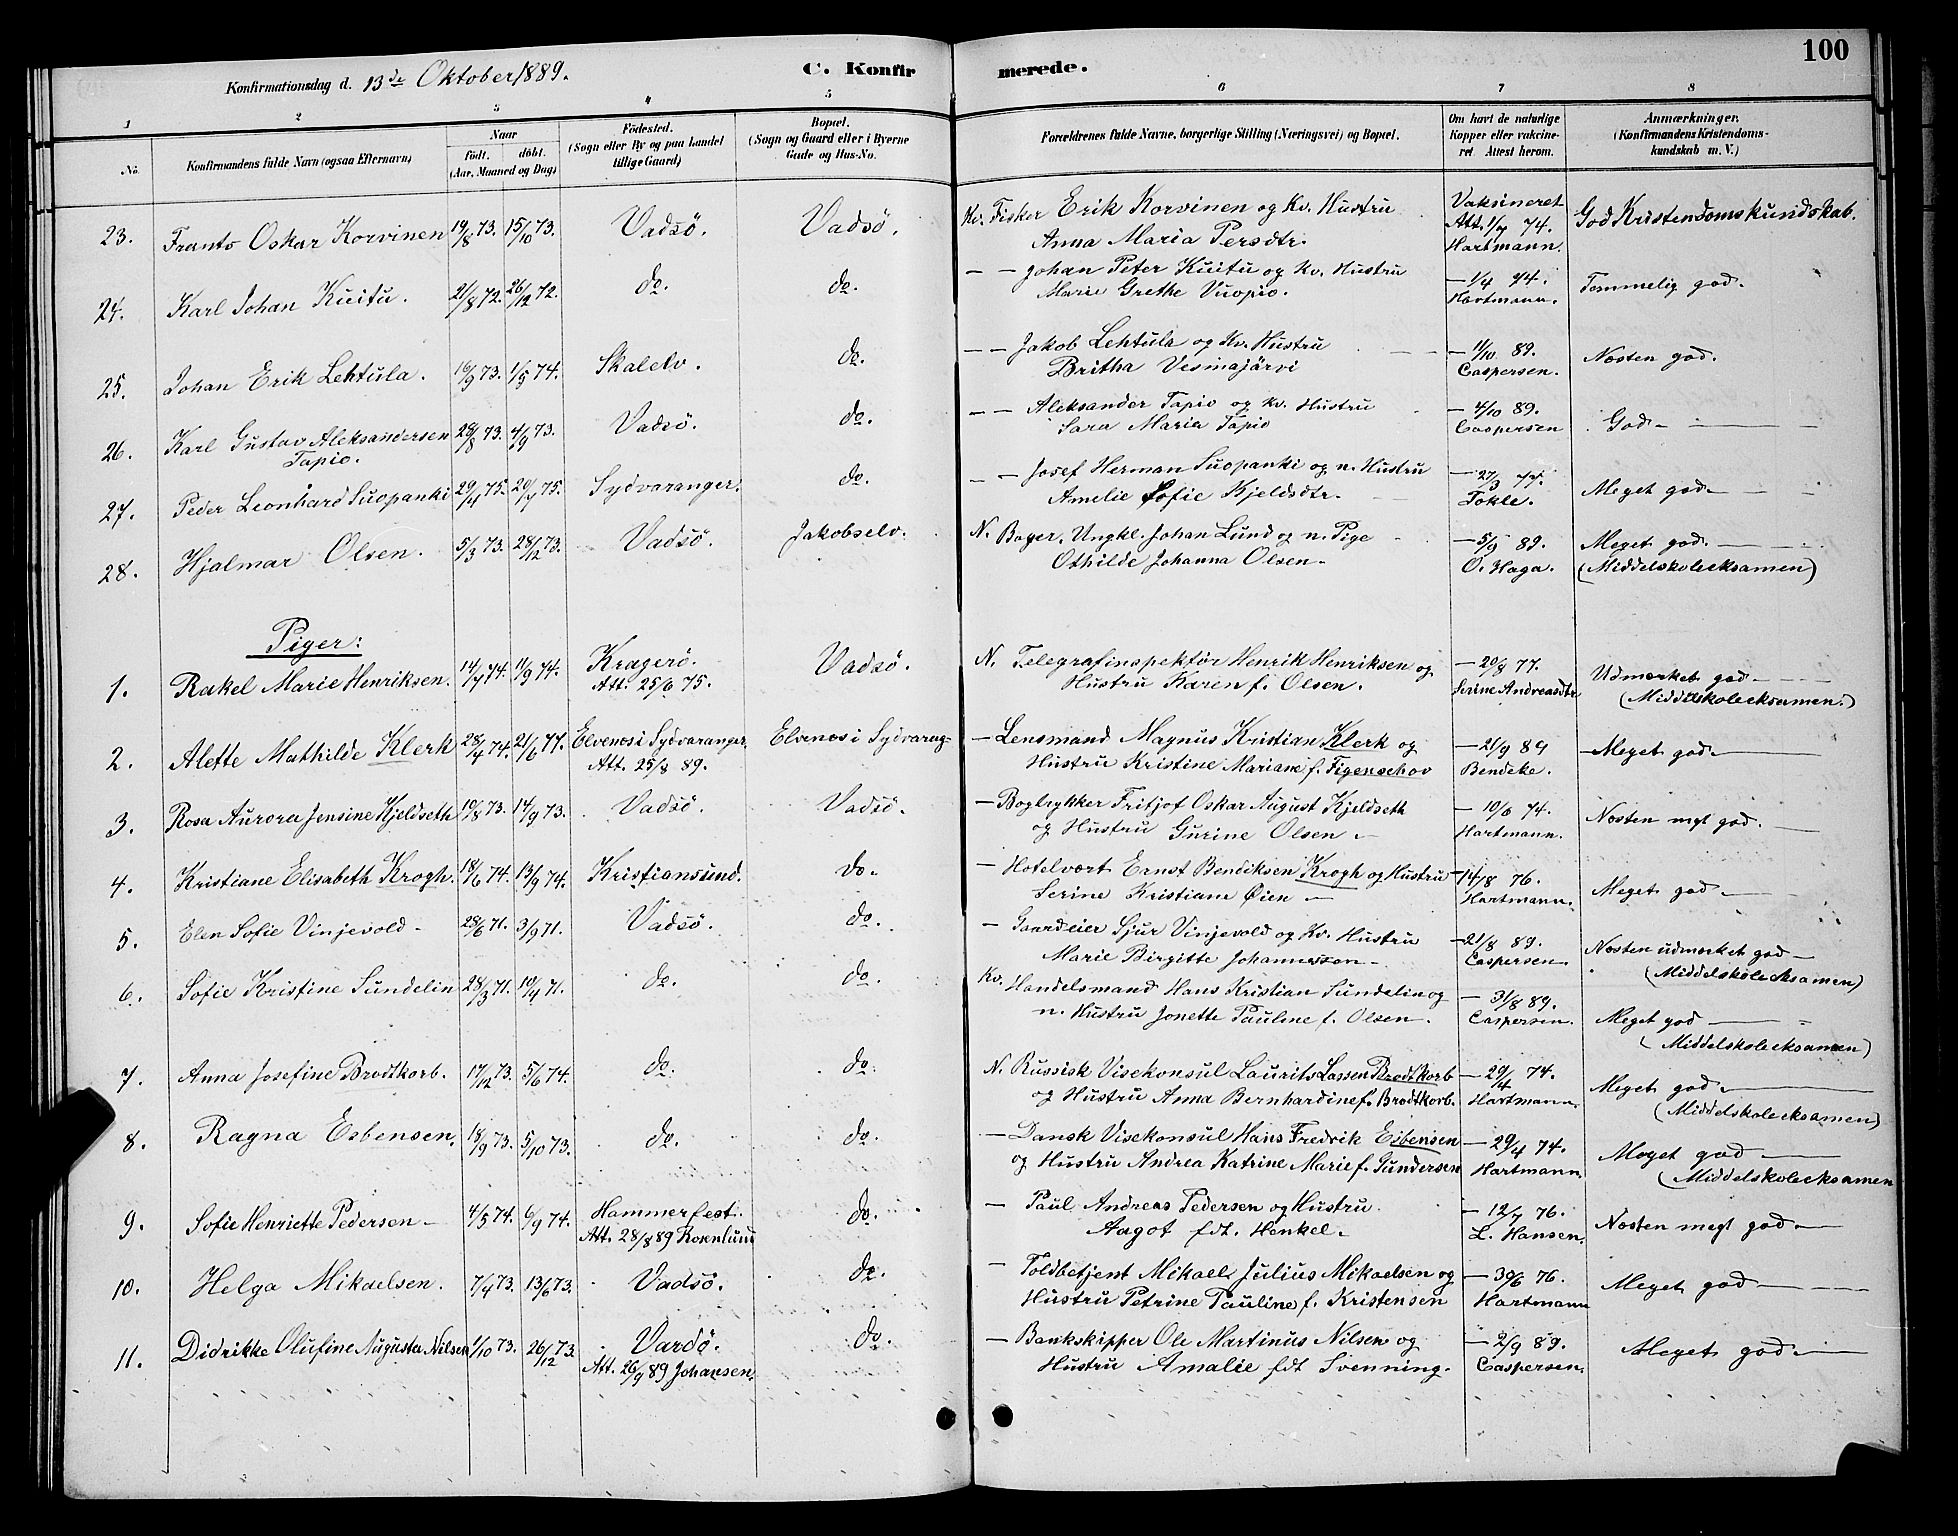 100
Konfirmationsdag d. 13de Oktober 1889.
C. Konfirmerede.
1 2 3 4 5 6 7 8
No.
Konfirmandens fulde Navn (ogsaa Efternavn)
Naar
födt. döbt.
(Aar, Maaned og Dag)
Födested.
(Sogn eller By og paa Landet
tillige Gaard)
Bopæl.
(Sogn og Gaard eller i Byerne
Gade og Hus-No.
Forældrenes fulde Navne, borgerlige Stilling (Næringsvei) og Bopæl.
Om havt de naturlige
Kopper eller vakcine-
ret Attest herom.
Anmærkninger.
(Konfirmandens Kristendoms-
kundskab m. V.)
23. Frants Oskar Korvinen 19/8 73. 15/10 73. Vadsö. Vadsö. Kv. Fisker Erik Korvinen og Kv. Hustru
Anna Maria Persdtr.
Vaksineret
Att. 1/7 74.
Hartmann.
God Kristendomskundskab.
24. Karl Johan Kuitu. 21/8 72. 26/12 72. do. do. — — Johan Peter Kuitu og Kv. Hustru
Marie Grethe Vuopio.
— 1/4 74.
Hartmann.
Temmelig god.
25. Johan Erik Lehtula. 16/9 73. 1/5 74. Skalelv. do. — — Jakob Lehtula og Kv. Hustru
Britha Vesmajärvi
— 11/10 89.
Caspersen.
Næsten god.
26. Karl Gustav Aleksandersen
Tapio. 28/8 73. 4/9 73. Vadsö. do. — — Aleksander Tapio og Kv. Hustru
Sara Maria Tapio
— 4/10 89.
Caspersen
God —
27. Peder Leonhard Suopanki 29/4 75. 20/7 75. Sydvaranger. do. — — Josef Herman Suopanki og n. Hustru
Amelie Sofie Kjeldsdtr.
— 27/3 77.
Tokle.
Meget god —
28. Hjalmar Olsen. 5/3 73. 28/12 73. Vadsö. Jakobselv. N. Bager, Ungkl. Johan Lund og n. Pige
Othilde Johanna Olsen.
— 5/9 89.
O. Haga.
Meget god. —
(Middelskoleeksamen)
Piger:
1. Rakel Marie Henriksen. 14/7 74. 11/9 74. Kragerö.
Att. 25/6 75.
Vadsö. N. Telegrafinspektör Henrik Henriksen og
Hustru Karen f. Olsen.
— 20/8 77.
Serine Andreasdtr
Udmærket god —
(Middelskoleeksamen.)
2. Alette Mathilde Klerk 28/4 74. 21/6 77. Elvenes i Sydvaranger.
Att. 25/8 89.
Elvenes i Sydvarang- — Lensmand Magnus Kristian Klerk og
Hustru Kristine Mariane f. Figenschov
— 21/9 89
Bendeke.
Meget god —
3. Rosa Aurora Jensine Kjeldseth 10/8 73. 14/9 73. Vadsö. Vadsö. — Bogtrykker Fritjof Oskar August Kjeldseth
og Hustru Gurine Olsen —
— 10/6 74.
Hartmann.
Næsten mgt god. —
4. Kristiane Elisabeth Krogh. 18/6 74. 13/9 74. Kristiansund. do. — Hotelvært Ernst Bendiksen Krogh og Hustru
Serine Kristiane Øien —
— 14/8 76.
Hartmann.
Meget god —
5. Elen Sofie Vinjevold — 28/6 71. 3/9 71. Vadsö. do. — Gaardeier Sjur Vinjevold og Kv. Hustru
Marie Birgitte Johannesson —
— 21/8 89.
Caspersen
Næsten udmærket god —
(Middelskoleeksamen)
6. Sofie Kristine Sundelin 28/3 71. 10/4 71. do. do. Kv. Handelsmand Hans Kristian Sundelin og
n. Hustru Jonette Pauline f. Olsen.
— 31/8 89.
Caspersen.
Meget god —
(Middelskoleeksamen)
7. Anna Josefine Brodtkorb. 17/12 73. 5/6 74. do. do. N. Russisk Visekonsul Laurits Lassen Brodtkorb
og Hustru Anna Bernhardine f. Brodtkorb.
— 29/4 74.
Hartmann.
Meget god —
(Middelskoleeksamen)
8. Ragna Esbensen. 18/9 73. 5/10 73. do. do. — Dansk Visekonsul Hans Fredrik Esbensen
og Hustru Andrea Katrine Marie f. Gundersen
— 29/4 74.
Hartmann
Meget god —
(Middelskoleeksamen
9. Sofie Henriette Pedersen — 4/5 74. 6/9 74. Hammerfest.
Att. 28/8 89 Rosenlund
do. — Paul Andreas Pedersen og Hustru
Aagot fdt. Henkel.
— 12/7 76.
L. Hansen.
Næsten megt god —
10. Helga Mikaelsen. 7/4 73. 13/6 73. Vadsö. do. — Toldbetjent Mikael Julius Mikaelsen og
Hustru Petrine Pauline f. Kristensen
— 30/6 76.
Hartmann
Meget god —
11. Didrikke Olufine Augusta Nilsen 1/10 73. 26/12 73. Vardö.
Att. 26/9 89 Johansen.
do. — Bankskipper Ole Martinus Nilsen og
Hustru Amalie fdt Svenning.
— 2/9 89.
Caspersen.
Meget god —